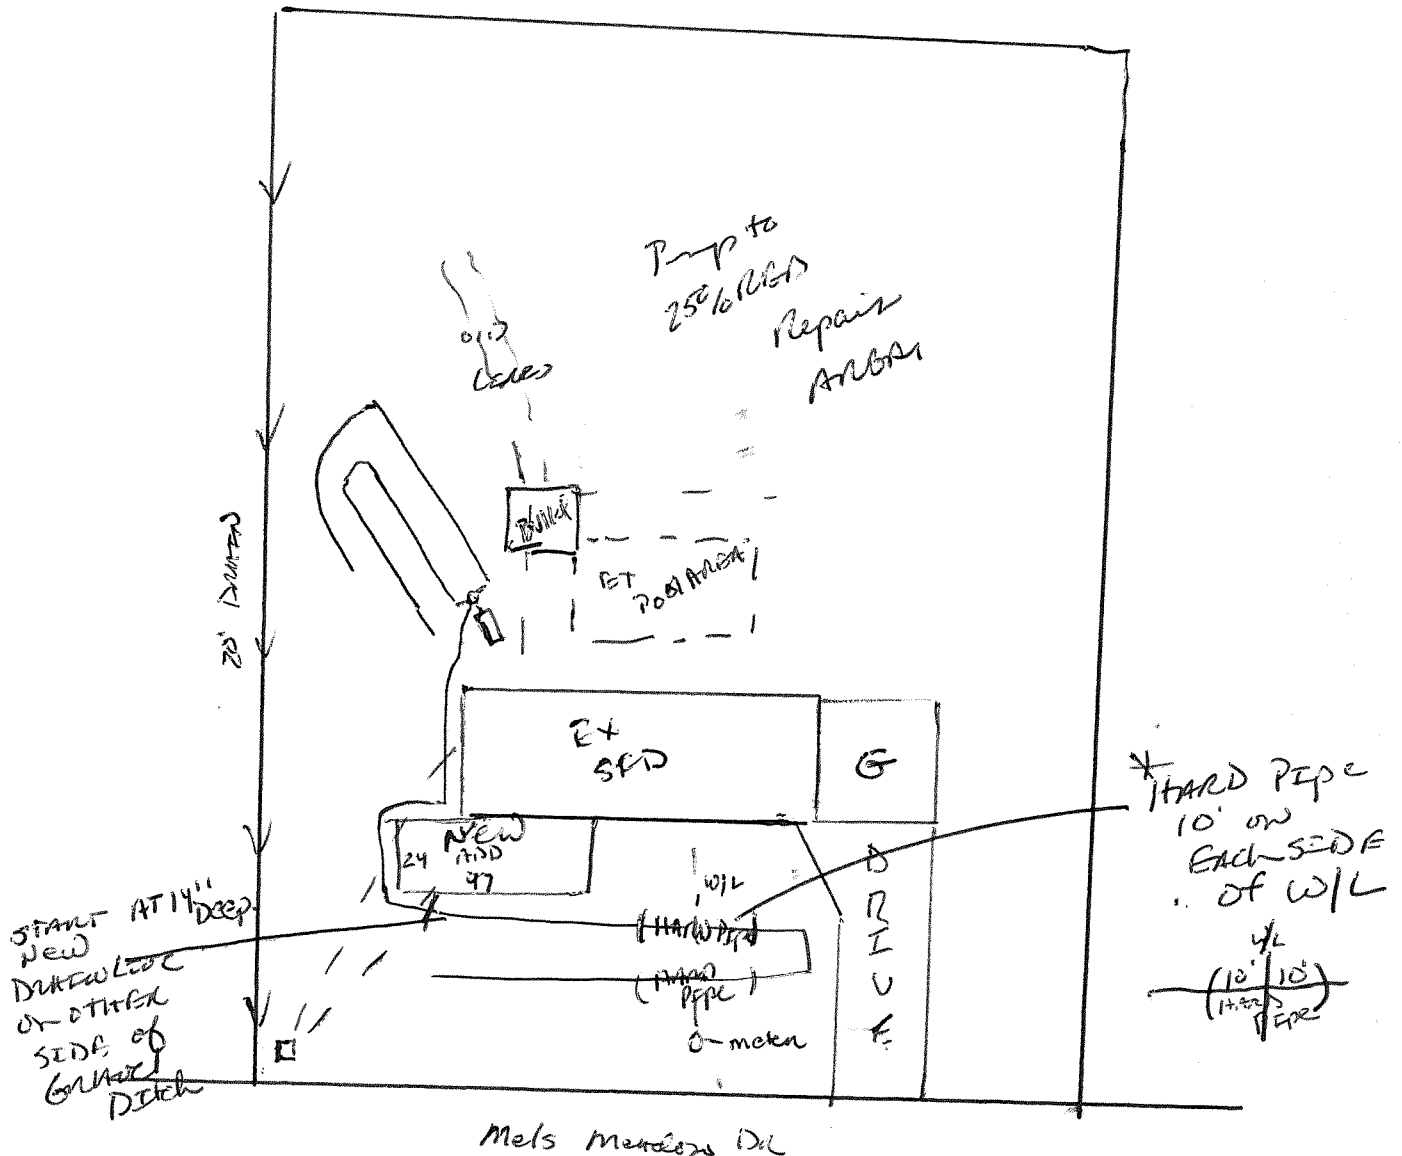 Pump to
25% RED
Repair
AREA
OLD
LINES
20' DRAIN
BUILD
EX
POOL AREA
EX
SFD
G
NEW
ADD
24
47
W/L
(HARD PIPE)
(HARD
PIPE
O-meter
DRIVE
* HARD PIPE
10' ON
EACH SIDE
of W/L
W/L
(10' 10')
HARD
PIPE
START AT 14" DEEP
NEW
DRAINLINE
ON OTHER
SIDE of
DITCH
Mels Meadow DR